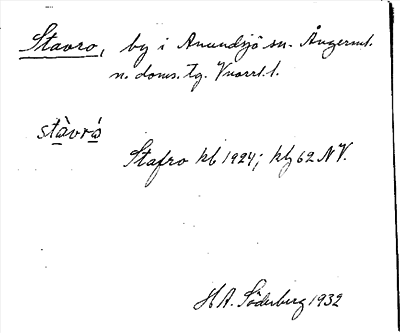 Stavro, by i Anundsjö sn. Ångerml.
n. doms. tg. Vvorrl. l.
stàvrá
Stafro kb 1924; kbg 62 NV.
H A. Söderberg 1932